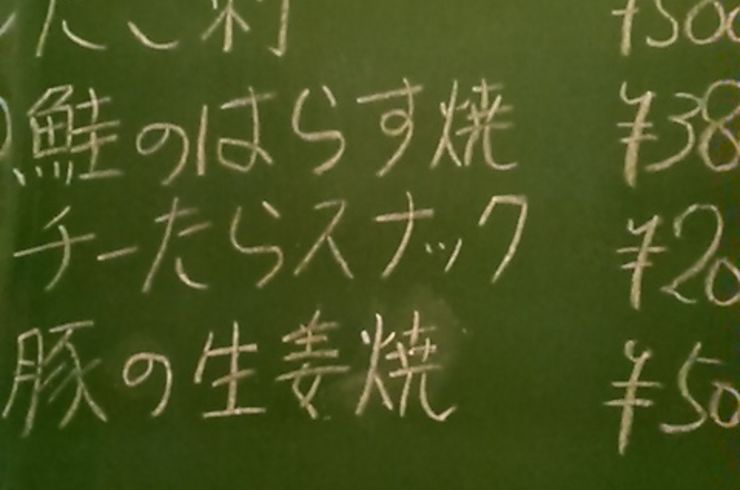 たこ刺 ¥500
鮭のはらす焼 ¥38
チーたらスナック ¥20
豚の生姜焼 ¥50